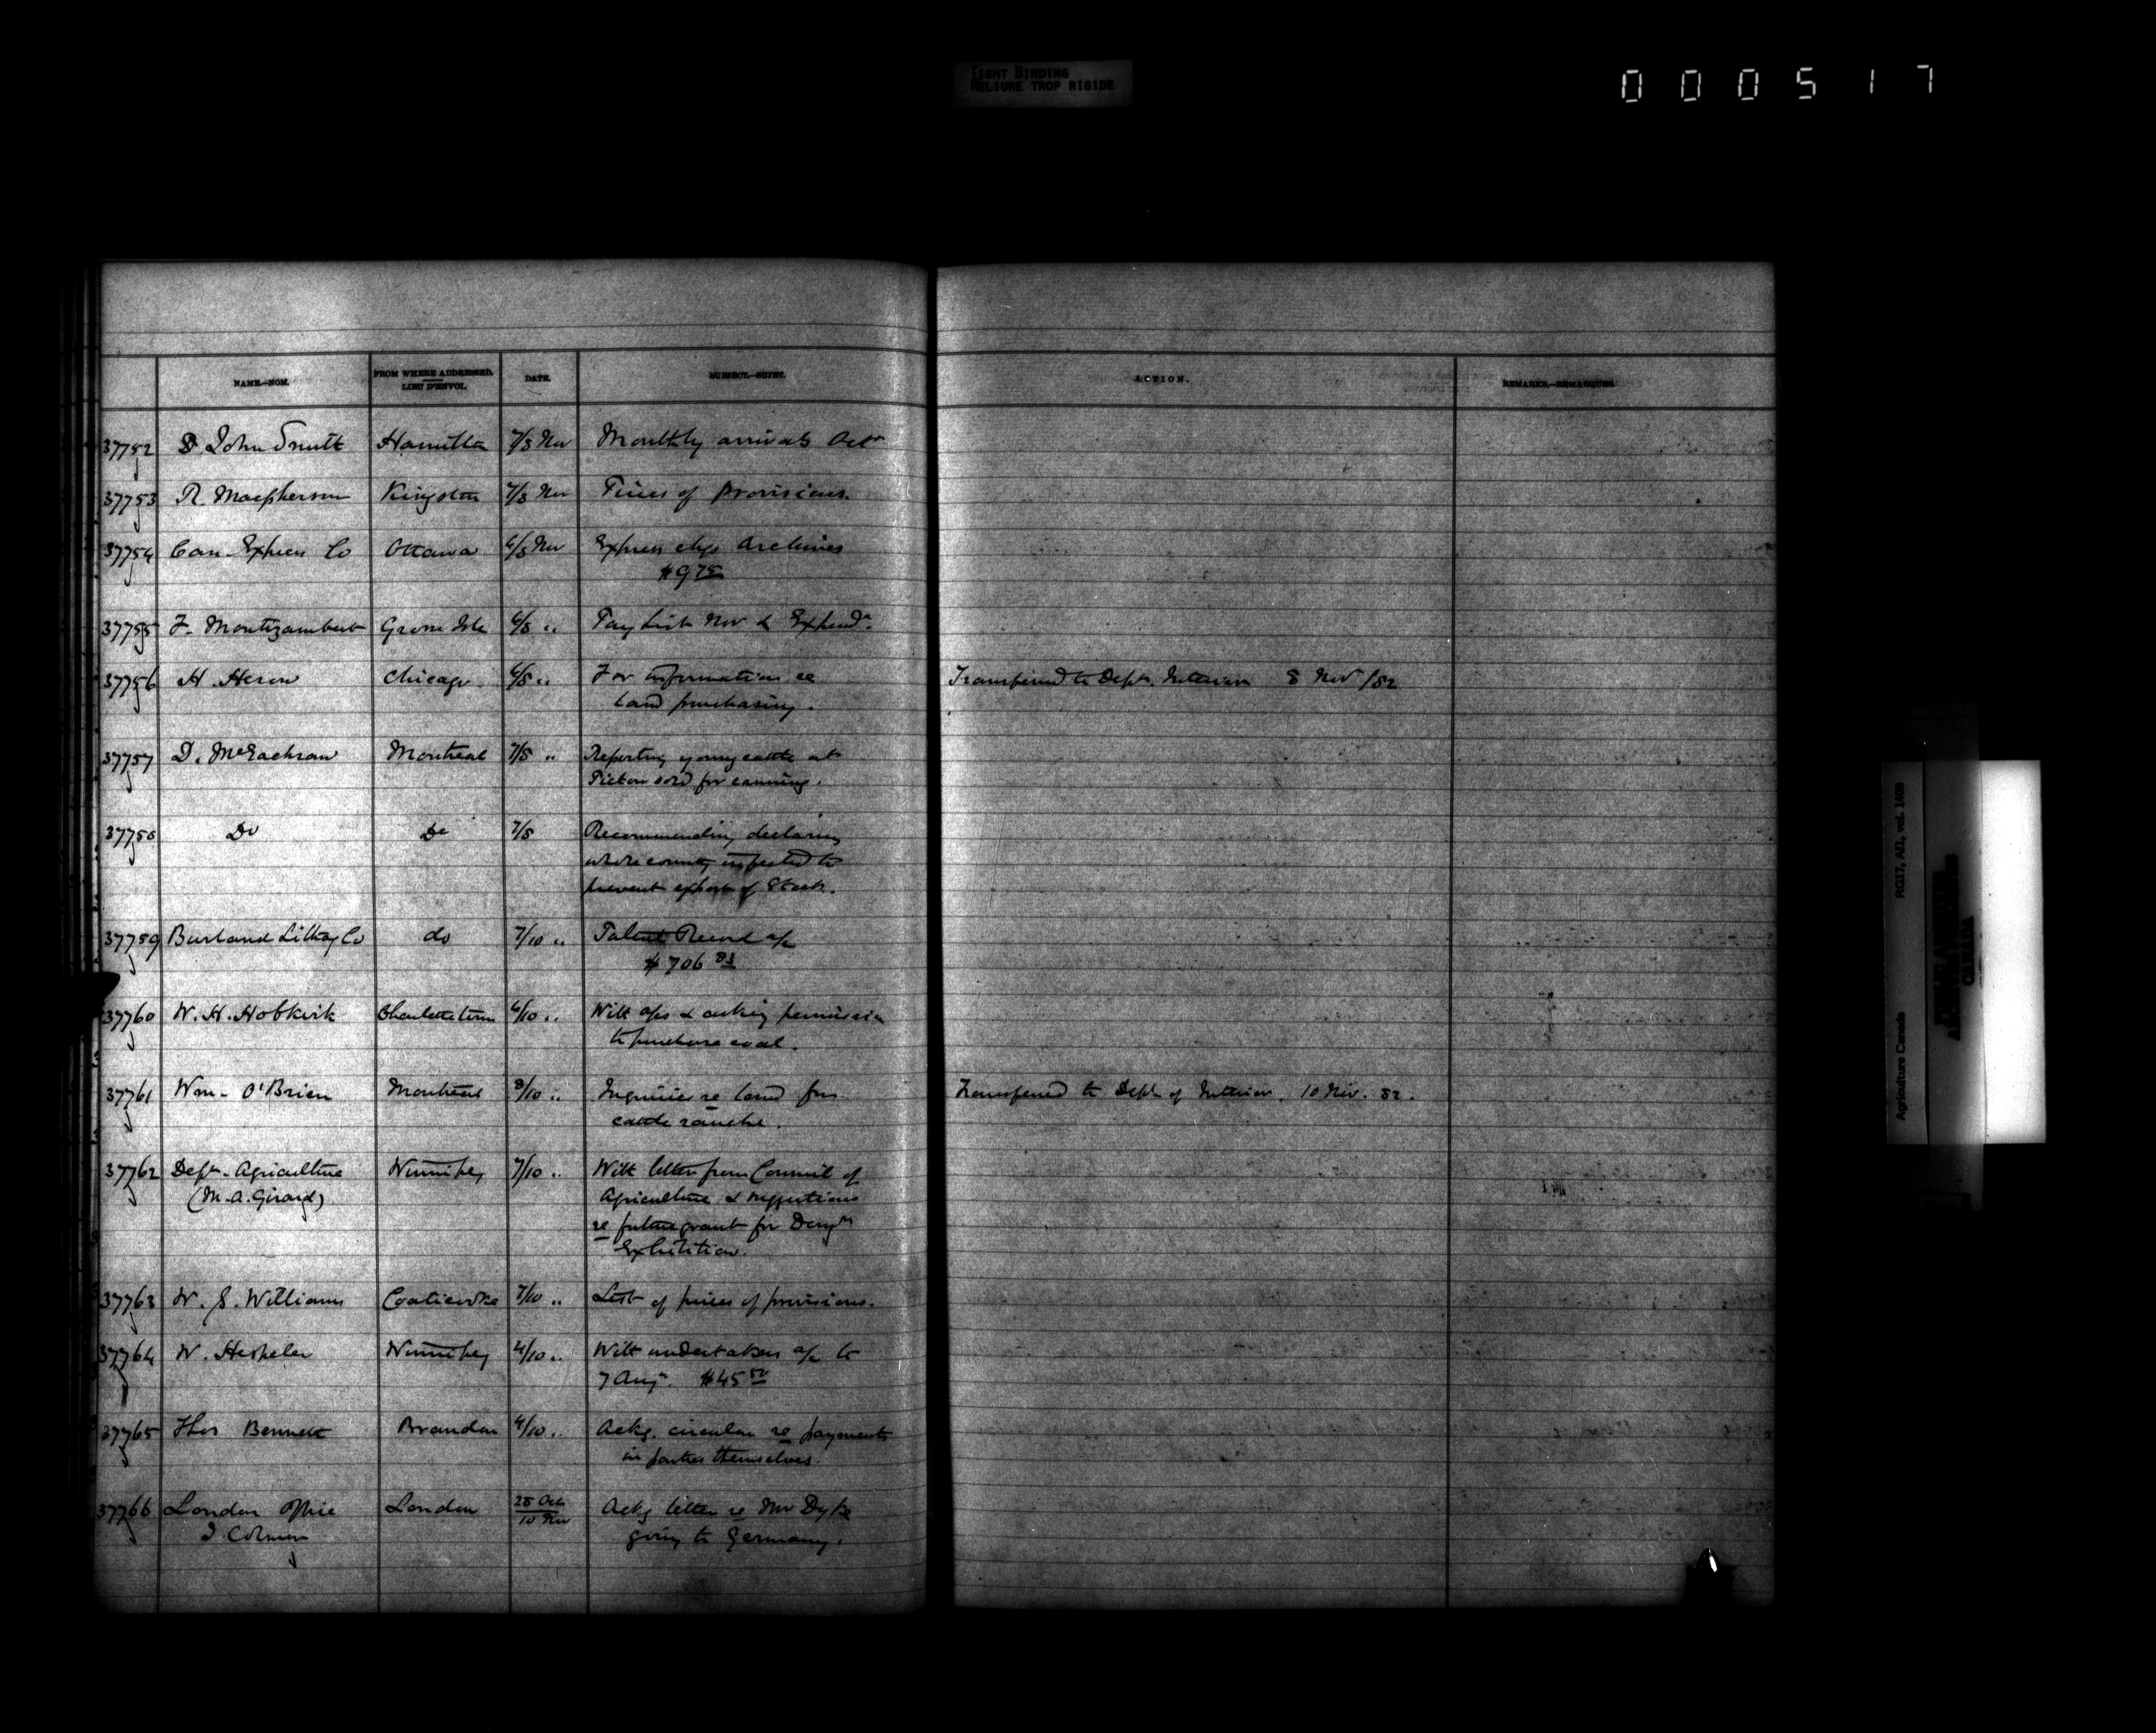 TIGHT BINDING
RELIURE TROP RIGIDE
000517
NAME.—NOM.
FROM WHERE ADDRESSED.
LIEU D'ENVOI.
DATE.
SUBJECT.—SUJET.
ACTION.
REMARKS.—REMARQUES.
37752 John Smith Hamilton 7/8 Nov Monthly arrivals Octr
37753 R. Macpherson Kingston 7/8 Nov Prices of Provisions.
37754 Can. Express Co Ottawa 6/8 Nov Express chgs Archives
37755 F. Montizambert Grosse Isle 6/8 " Pay List Nov & Expendr.
37756 H. Heron Chicago 6/8 " For information re Transferred to Dept. Interior 8 Nov/82
land purchasing.
37757 D. McEachran Montreal 7/8 " Reporting young cattle at
Picton sold for canning.
37758 Do Do 7/8 Recommending declaring
whole county infected to
prevent export of Stock.
37759 Burland Lithog Co do 7/10 " Patent Record a/c
$706 83
37760 W. H. Hobkirk Charlottetown 6/10 " With a/cs & asking permission
to purchase coal.
37761 Wm. O'Brien Montreal 8/10 " Inquiries re land for Transferred to Dept of Interior. 10 Nov. 82.
cattle ranche.
37762 Dept. Agriculture Winnipeg 7/10 " With letter from Council of
(M. A. Girard) Agriculture & suggestions
re future grant for Domn
Exhibition.
37763 W. S. Williams Coaticooke 7/10 " List of prices of provisions.
37764 W. Hespeler Winnipeg 4/10 " With undertakers a/c to
7 Aug. $45 50
37765 Thos Bennett Brandon 4/10 " Ackg. circular re payments
in parties themselves.
37766 London Office London 25 Oct Ackg letter re Mr Dyke
J. Colmer 10 Nov going to Germany.
Agriculture Canada RG17, AII, vol. 1408
CANADA